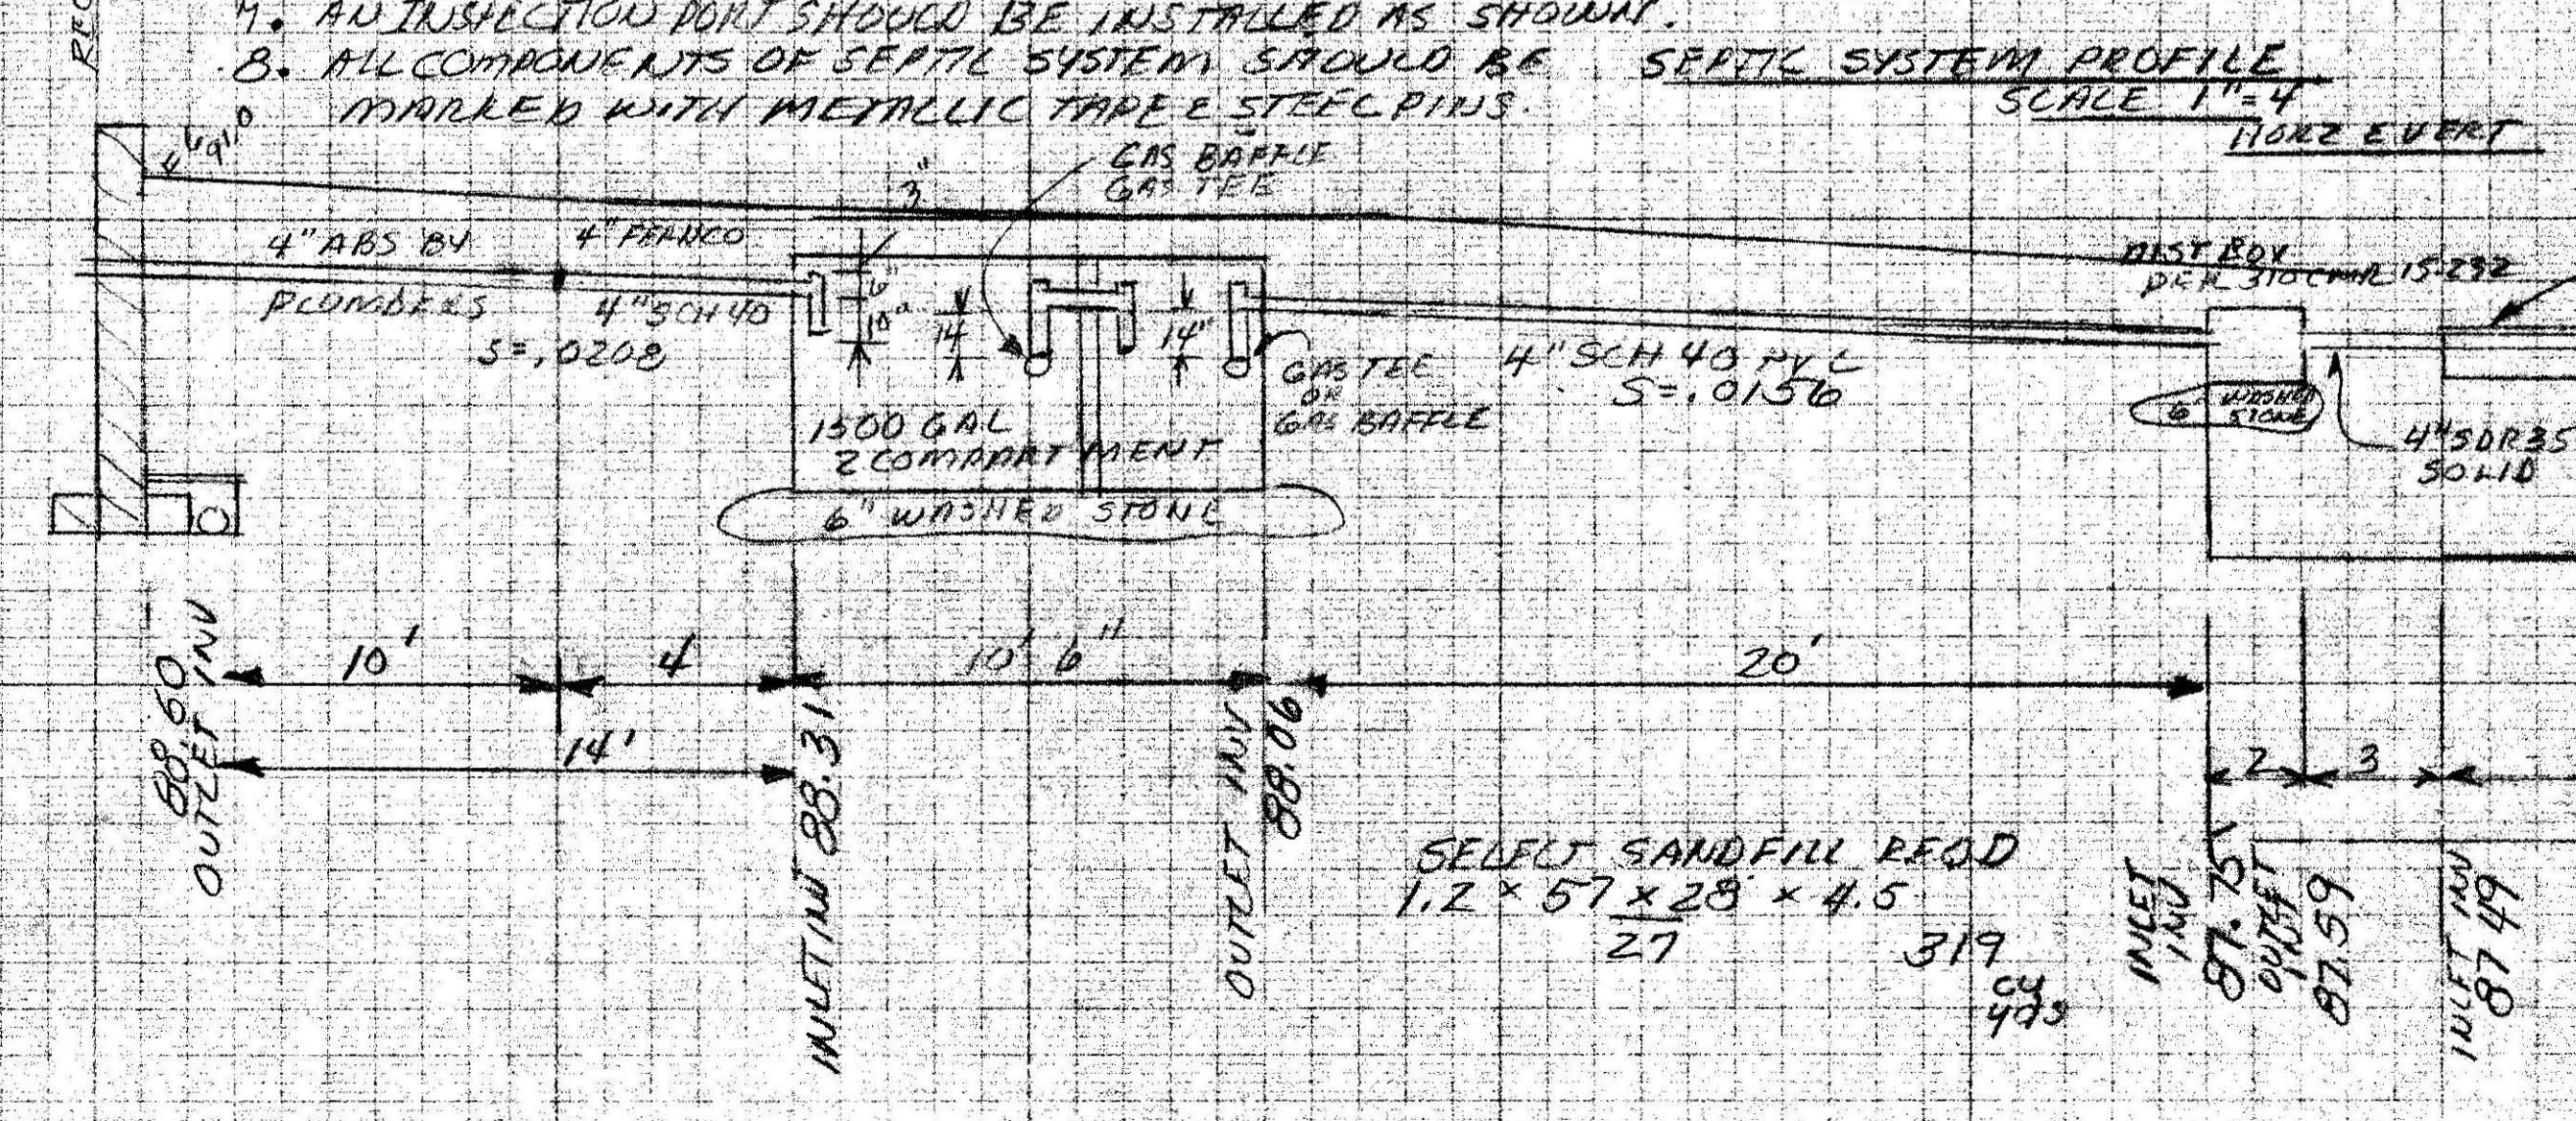 7. AN INSPECTION PORT SHOULD BE INSTALLED AS SHOWN.
8. ALL COMPONENTS OF SEPTIC SYSTEM SHOULD BE
MARKED WITH METALLIC TAPE & STEEL PINS.
SEPTIC SYSTEM PROFILE
SCALE 1"=4
HORZ & VERT
91.0
GAS BAFFLE
GAS TEE
3"
4" ABS BY
PLUMBERS
4" FERNCO
4" SCH 40
S=.0208
6"
10"
14
14"
1500 GAL
2 COMPARTMENT
6" WASHED STONE
GAS TEE
OR
GAS BAFFLE
4" SCH 40 PVC
S=.0156
DIST BOX
PER 310 CMR 15.232
6" WASHED
STONE
4" SDR 35
SOLID
10'
4
10' 6"
20'
14'
2
3
88.60
OUTLET INV
INLET INV 88.31
OUTLET INV
88.06
SELECT SANDFILL REQD
1.2 x 57 x 28 x 4.5
27
319
cu
yds
INLET
INV
87.75
OUTLET
INV
87.59
INLET INV
87 49